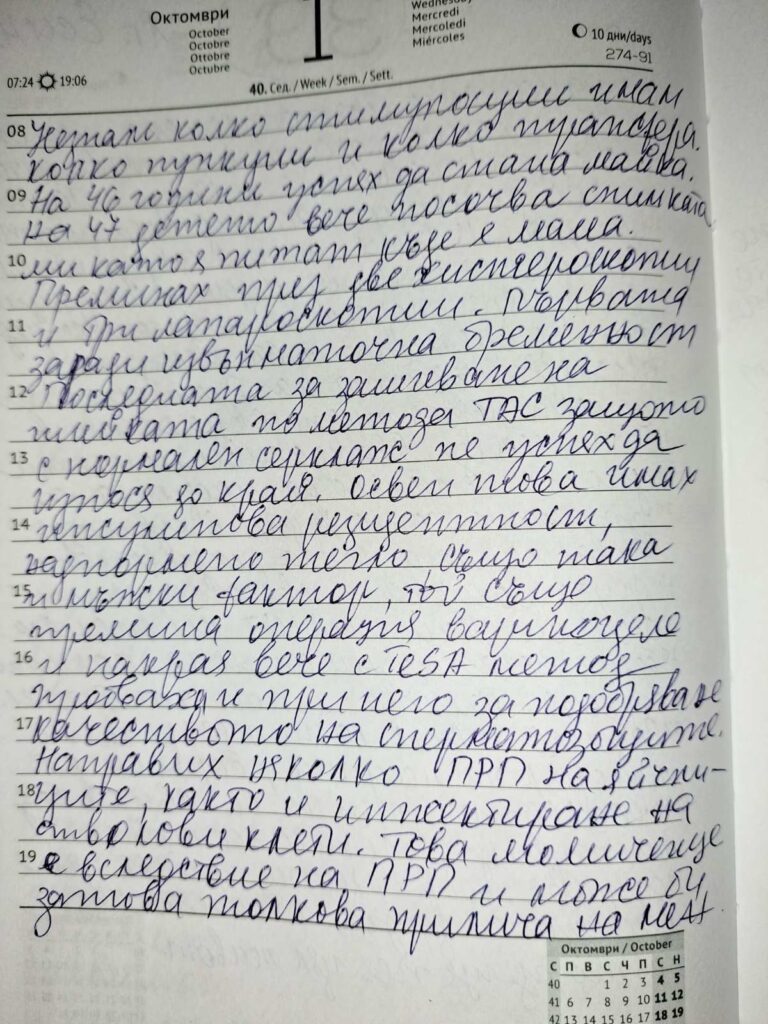 Октомври
October
Octobre
Ottobre
Octubre
1
Wednesday
Mercredi
Mercoledi
Miércoles
10 дни/days
274-91
07:24 19:06
40. Сед. / Week / Sem. / Sett.
08 Незная колко стимулации имам
колко пункции и колко трансфера.
09 На 46 години успех да стана майка.
на 47 детето вече посочва снимката
10 ми като я питат къде е мама.
Преминах през две хистероскопии
11 и три лапароскопии. Първата
заради извънматочна бременност
12 Последната за зашиване на
шийката по метода ТАС защото
13 с нормален серклаж не успех да
износя до края. Освен това имах
14 инсулинова резистентност,
наднормено тегло, също така
15 и мъжки фактор, той също
премина операция варикоцеле
16 и накрая вече с TeSA метод
пробваха и при него за подобряване
17 качеството на сперматозоидите.
Направих няколко ПРП на яйчни-
18 ците, както и инжектиране на
стволови клетки. Това момиченце
19 е вследствие на ПРП и може би
затова толкова прилича на мен
Октомври / October
С П В С Ч П С Н
40 1 2 3 4 5
41 6 7 8 9 10 11 12
42 13 14 15 16 17 18 19